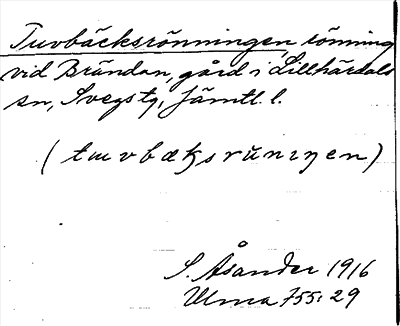 Tuvbäcksrönningen, rönning
vid Brändan, gård i Lillhärdals
sn, Svegs tg, Jämtl. l.
(tuvbæksrüniŋen)
S. Åsander 1916
Ulma 755:29